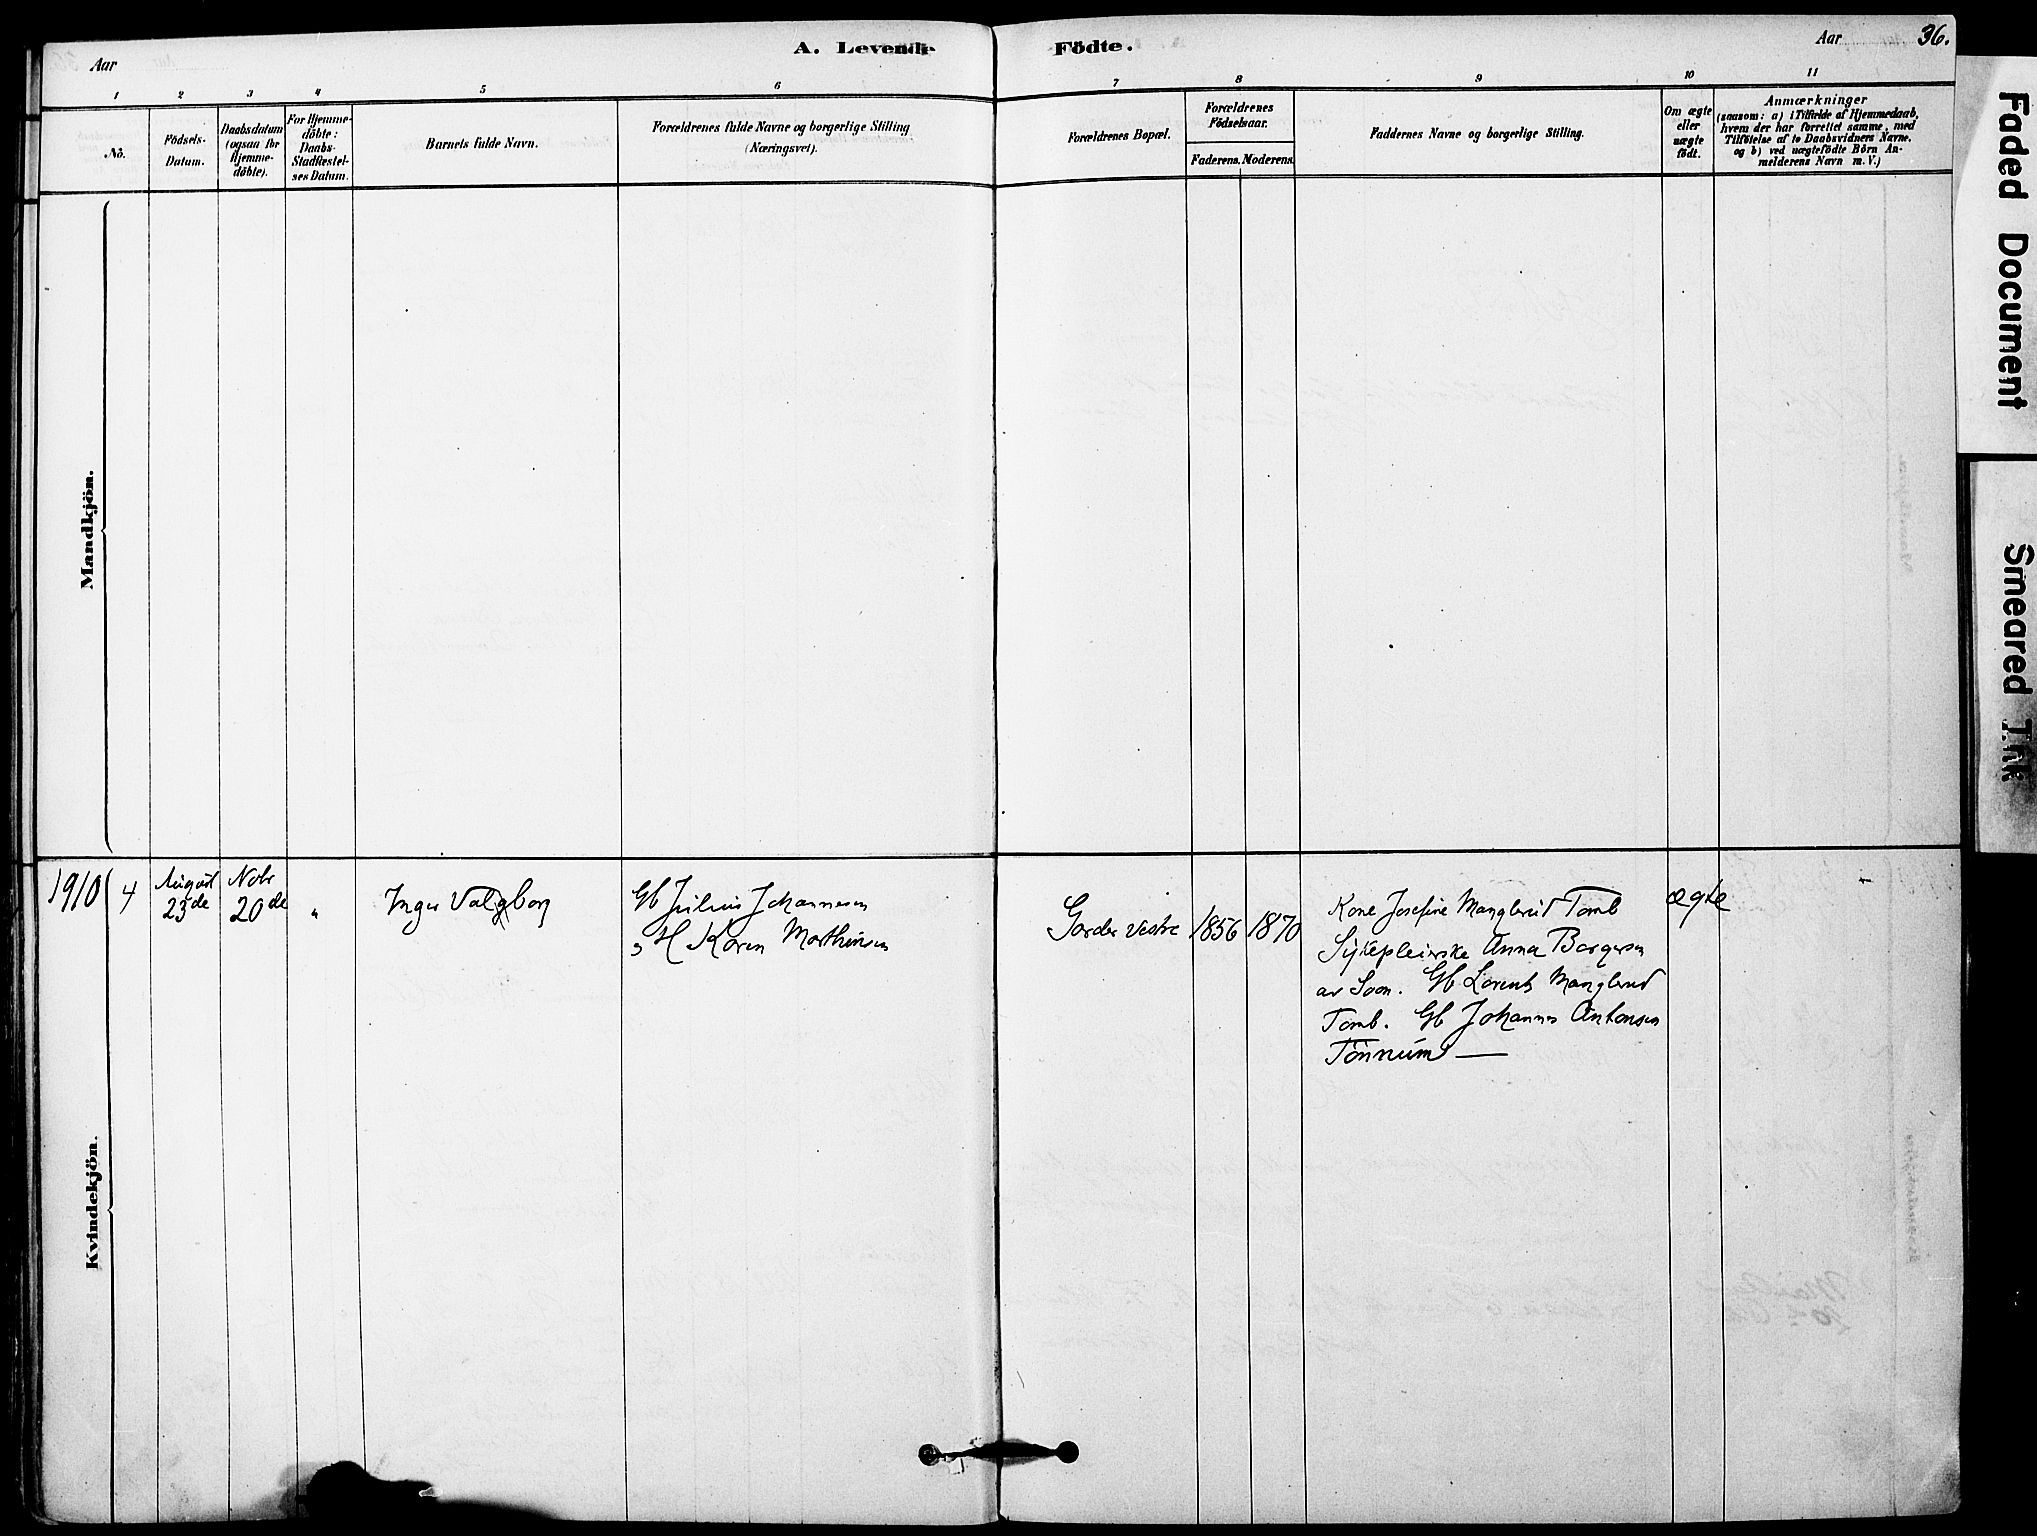 A. Levende Födte.
Aar
Aar 36.
1 2 3 4 5 6 7 8 9 10 11
No.
Födsels-
Datum.
Daabsdatum
(ogsaa for
Hjemme-
döbte).
For Hjemme-
döbte:
Daabs-
Stadfæstel-
ses Datum.
Barnets fulde Navn.
Forældrenes fulde Navne og borgerlige Stilling
(Næringsvei).
Forældrenes Bopæl.
Forældrenes
Födselsaar.
Faderens. Moderens.
Faddernes Navne og borgerlige Stilling.
Om ægte
eller
uægte
födt.
Anmærkninger
(saasom: a) i Tilfælde af Hjemmedaab,
hvem der har forrettet samme, med
Tilföielse af to Daabsvidners Navne,
og b) ved uægtefödte Börn An-
melderens Navn m. V.)
Mandkjön.
Kvindekjön.
1910 4
August
23de
Nobr
20de
"
Inger Valgborg
Gb Julius Johannesen
H Karen Mathinsen
Garder vestre
1856 1870
Kone Josefine Manglerud Tomb
Sykepleierske Anna Borgersen
av Soon. Gb Lorents Manglerud
Tomb. Gb Johannes Antonsen
Tonnum —
ægte
Faded Document
Smeared Ink